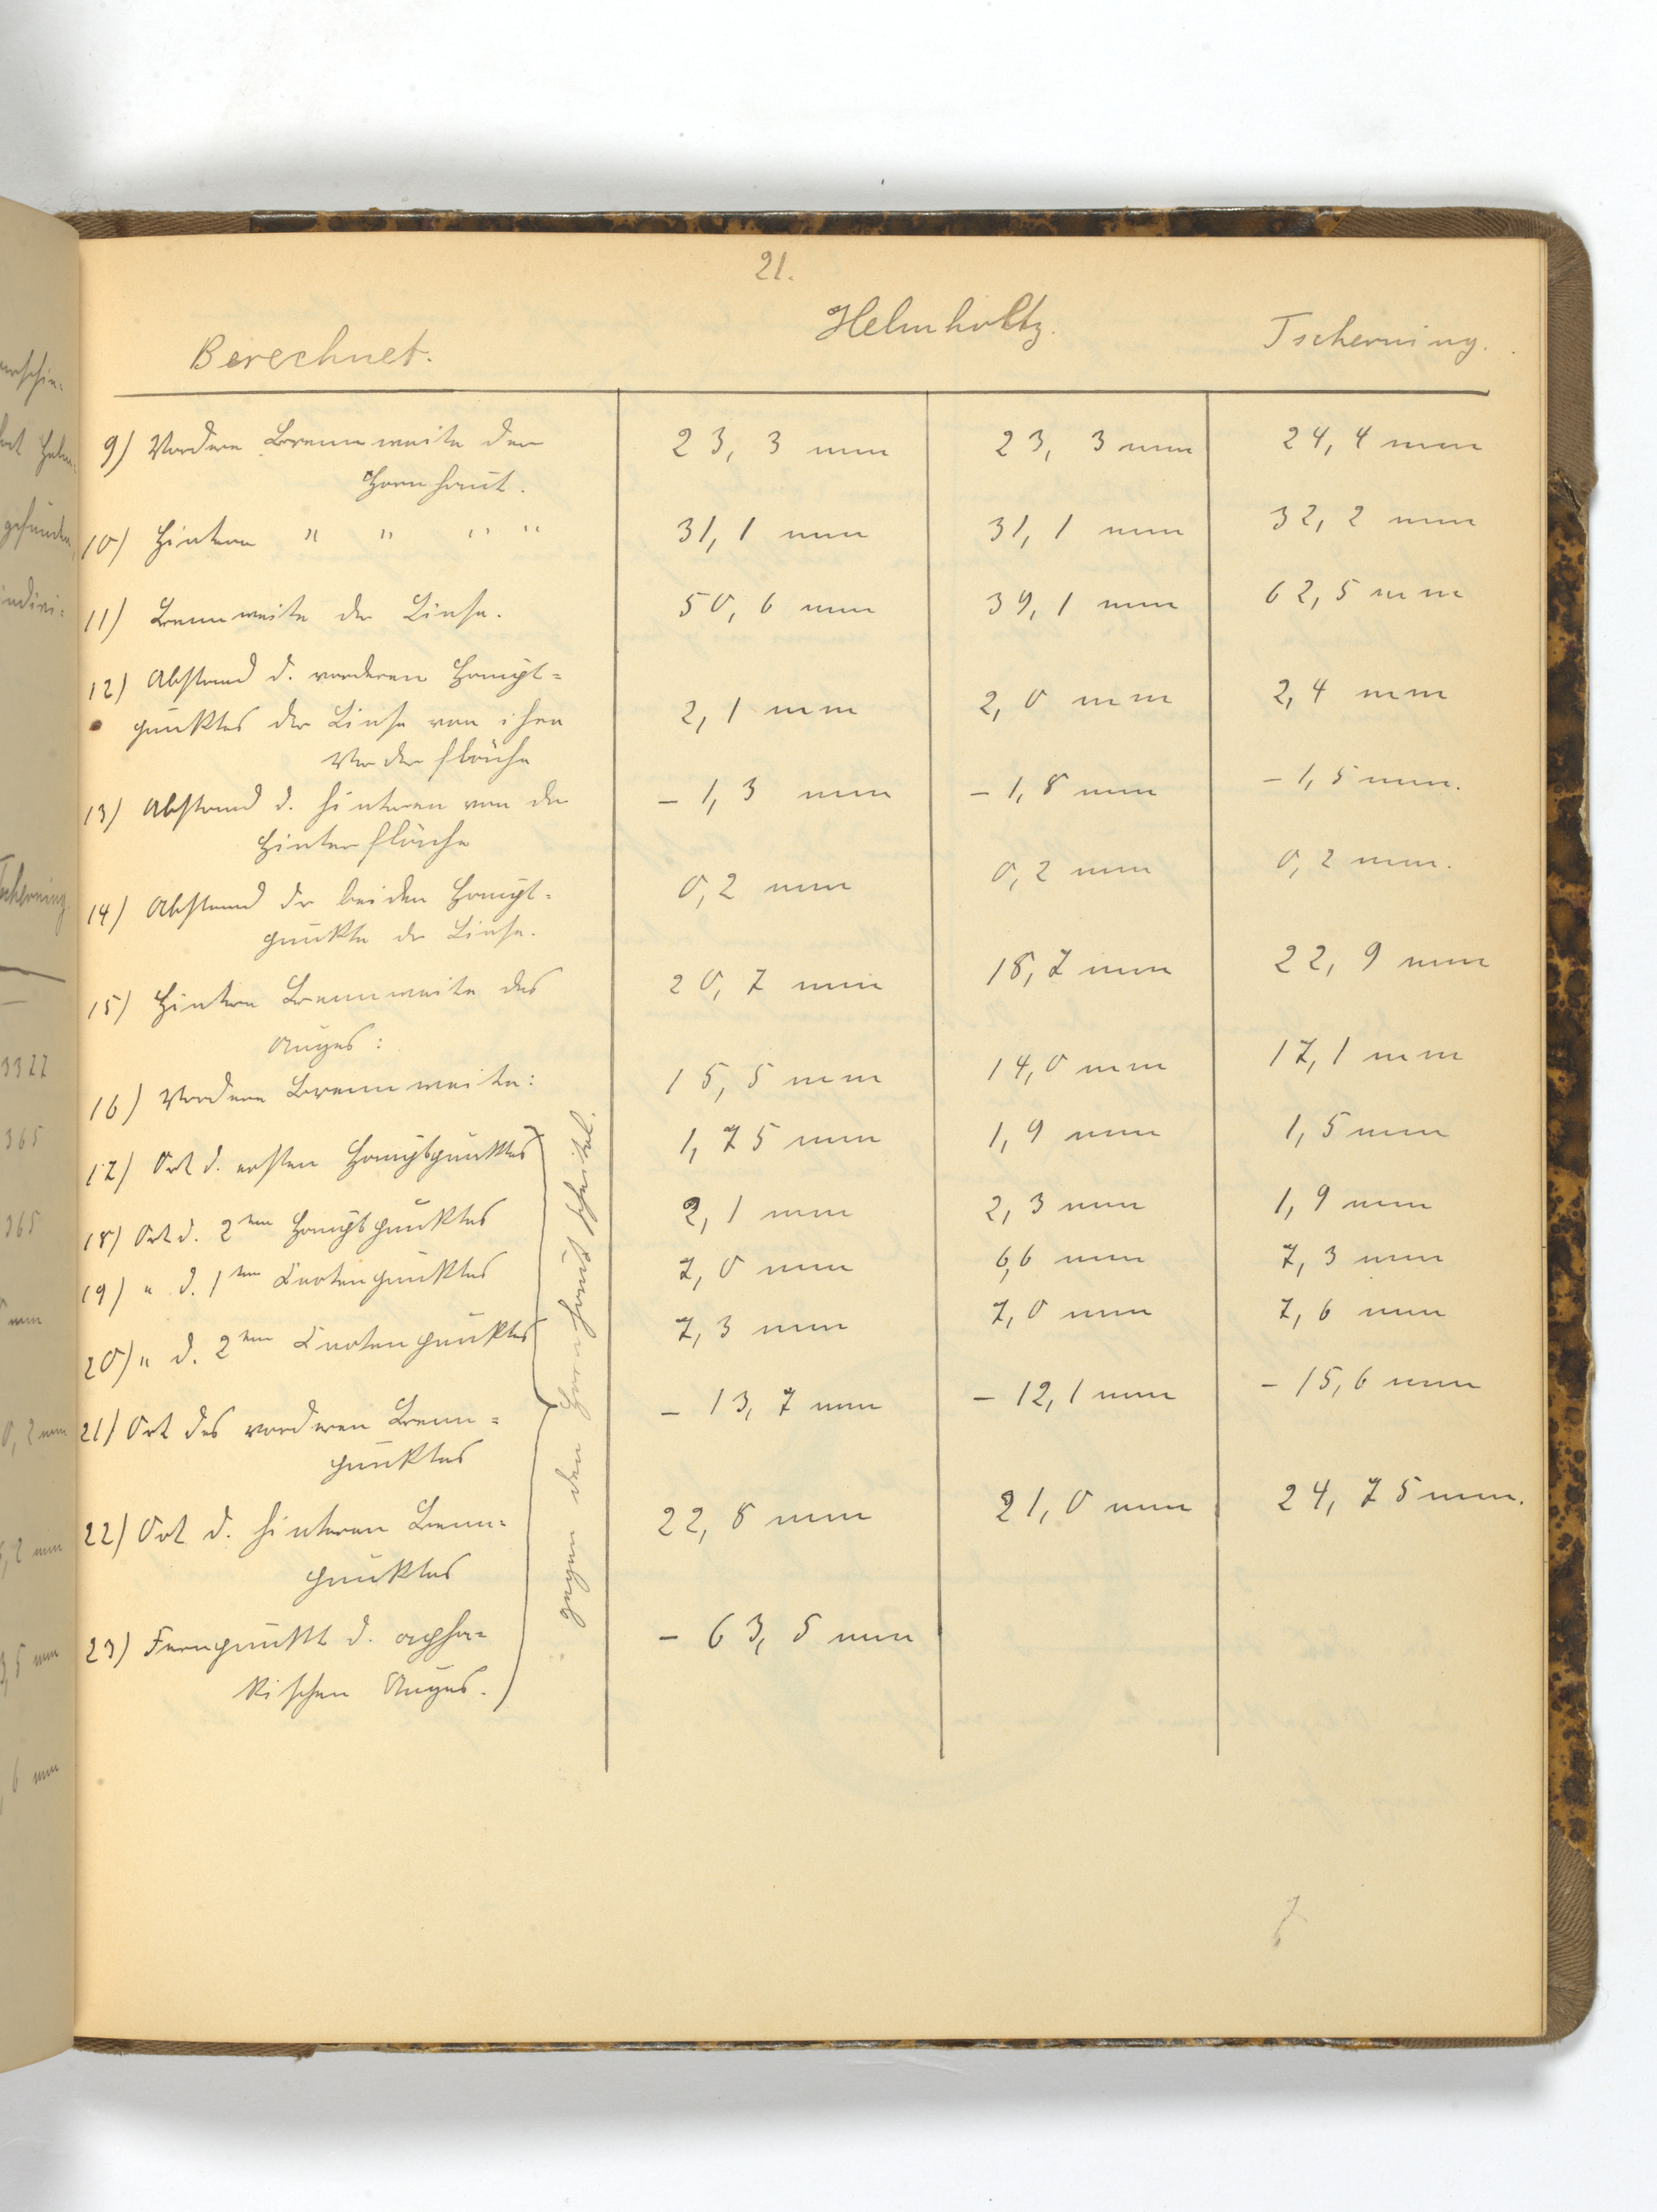 21.
Berechnet. Helmholtz. Tscherning.
9) Vordere Brennweite der 23,3 mm 23,3 mm 24,4 mm
Hornhaut.
10) Hintere " " " " 31,1 mm 31,1 mm 32,2 mm
11) Brennweite der Linse. 50,6 mm 39,1 mm 62,5 mm
12) Abstand d. vorderen Haupt=
punktes der Linse von ihrer 2,1 mm 2,0 mm 2,4 mm
Vorderfläche
13) Abstand d. hinteren von der – 1,3 mm – 1,8 mm – 1,5 mm.
Hinterfläche
14) Abstand der beiden Haupt= 0,2 mm 0,2 mm 0,2 mm.
punkte der Linse.
15) Hintere Brennweite des 20,7 mm 18,7 mm 22,9 mm
Auges:
16) Vordere Brennweite: 15,5 mm 14,0 mm 17,1 mm
17) Ort d. ersten Hauptpunktes 1,75 mm 1,9 mm 1,5 mm
18) Ort d. 2ten Hauptpunktes 2,1 mm 2,3 mm 1,9 mm
19) " d. 1ten Knotenpunktes 7,0 mm 6,6 mm 7,3 mm
20) " d. 2ten Knotenpunktes 7,3 mm 7,0 mm 7,6 mm
21) Ort des vorderen Brenn= – 13,7 mm – 12,1 mm – 15,6 mm
punktes
22) Ort d. hinteren Brenn= 22,8 mm 21,0 mm 24,75 mm.
punktes
23) Fernpunkt d. apha= – 63,5 mm
kischen Auges.
gegen den Hornhautscheitel.
gefunden
indivi=
Tscherning.
3377
365
365
mm
0,2 mm
,2 mm
3,5 mm
,6 mm